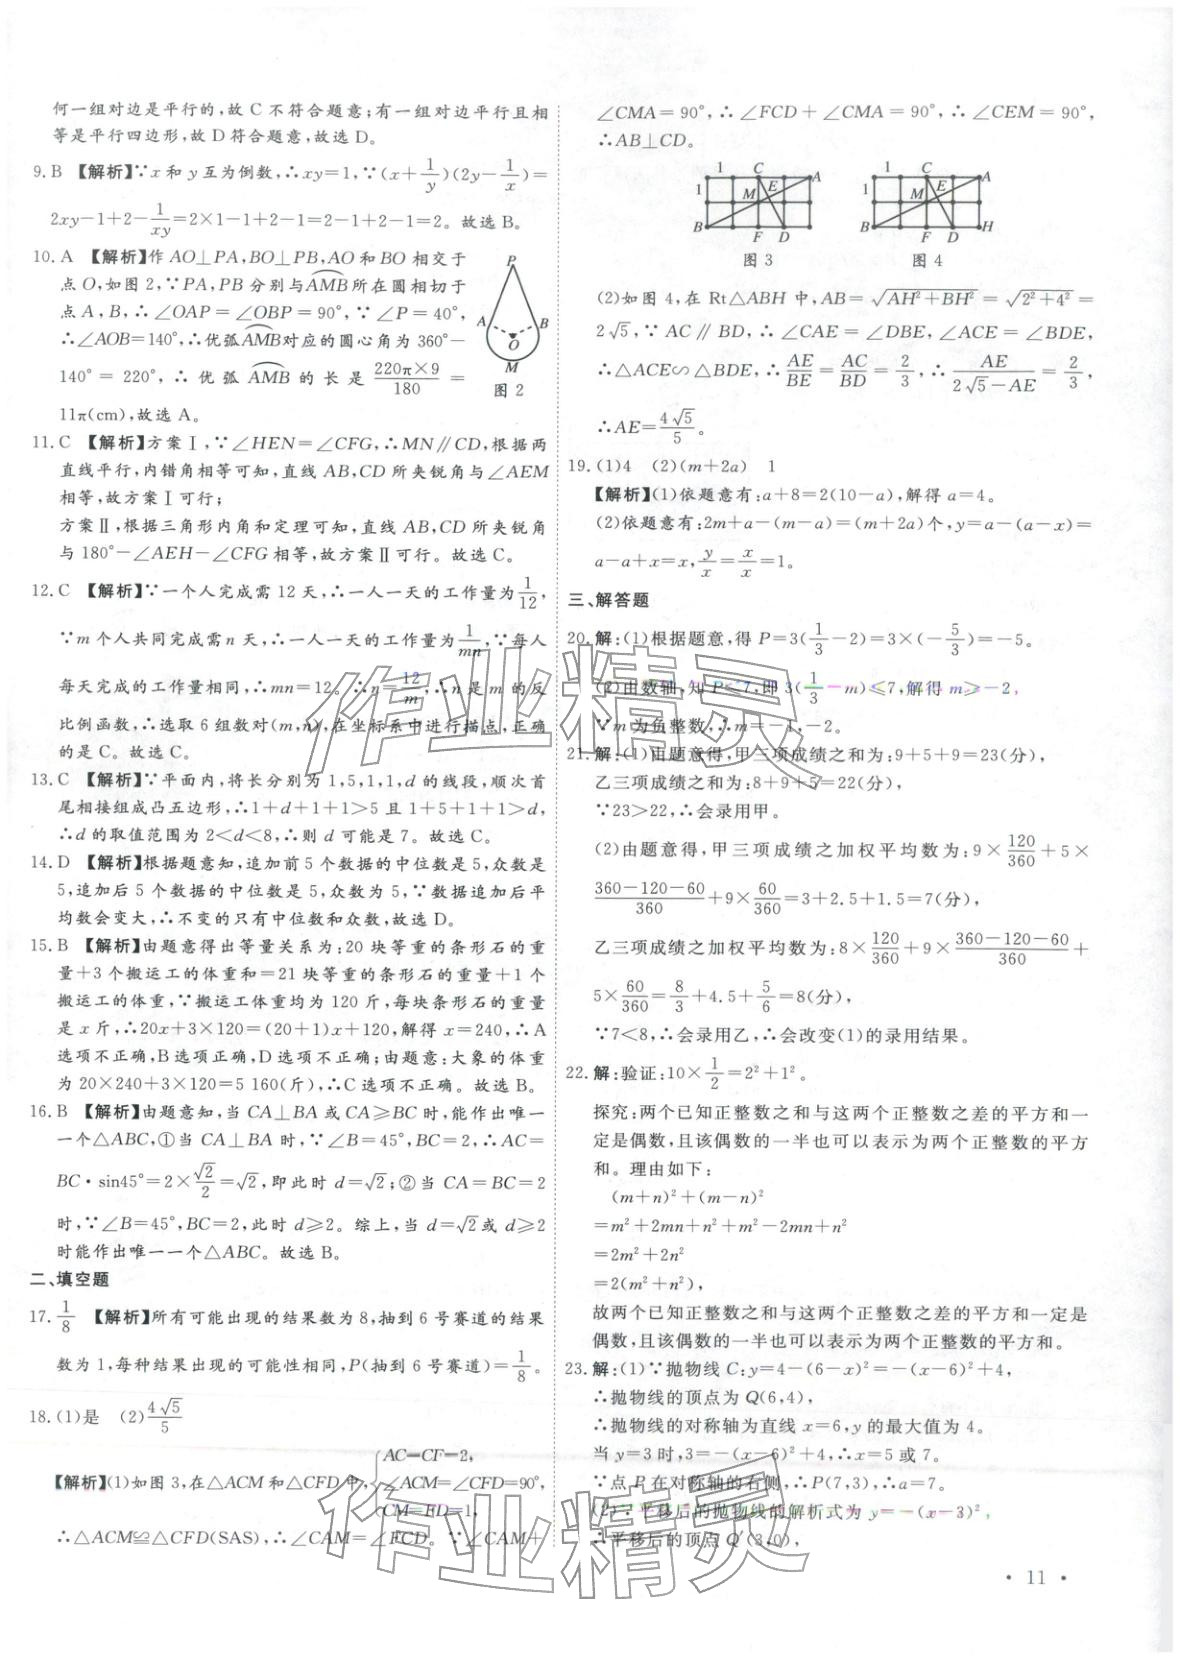 何一组对边是平行的,故 C 不符合题意;有一组对边平行且相
等是平行四边形,故 D 符合题意,故选 D。
9. B 【解析】∵x 和 y 互为倒数,∴xy=1,∵(x+1/y)(2y-1/x)=
2xy-1+2-1/xy=2×1-1+2-1=2-1+2-1=2。故选 B。
10. A 【解析】作 AO⊥PA,BO⊥PB,AO 和 BO 相交于
点 O,如图 2,∵PA,PB 分别与AMB所在圆相切于
点 A,B,∴∠OAP=∠OBP=90°,∵∠P=40°,
∴∠AOB=140°,∴优弧AMB对应的圆心角为 360°-
140°=220°,∴优弧 AMB 的长是 220π×9/180 =
11π(cm),故选 A。
P
A
B
O
M
图 2
11. C 【解析】方案Ⅰ,∵∠HEN=∠CFG,∴MN∥CD,根据两
直线平行,内错角相等可知,直线 AB,CD 所夹锐角与∠AEM
相等,故方案Ⅰ可行;
方案Ⅱ,根据三角形内角和定理可知,直线 AB,CD 所夹锐角
与 180°-∠AEH-∠CFG 相等,故方案Ⅱ可行。故选 C。
12. C 【解析】∵一个人完成需 12 天,∴一人一天的工作量为1/12,
∵m 个人共同完成需 n 天,∴一人一天的工作量为1/mn,∵每人
每天完成的工作量相同,∴mn=12。∴n=12/m,∴n 是 m 的反
比例函数,∴选取 6 组数对(m,n),在坐标系中进行描点,正确
的是 C。故选 C。
13. C 【解析】∵平面内,将长分别为 1,5,1,1,d 的线段,顺次首
尾相接组成凸五边形,∴1+d+1+1>5 且 1+5+1+1>d,
∴d 的取值范围为 2<d<8,∴则 d 可能是 7。故选 C。
14. D 【解析】根据题意知,追加前 5 个数据的中位数是 5,众数是
5,追加后 5 个数据的中位数是 5,众数为 5,∵数据追加后平
均数会变大,∴不变的只有中位数和众数,故选 D。
15. B 【解析】由题意得出等量关系为:20 块等重的条形石的重
量+3 个搬运工的体重和=21 块等重的条形石的重量+1 个
搬运工的体重,∵搬运工体重均为 120 斤,每块条形石的重量
是 x 斤,∴20x+3×120=(20+1)x+120,解得 x=240,∴A
选项不正确,B 选项正确,D 选项不正确;由题意:大象的体重
为 20×240+3×120=5 160(斤),∴C 选项不正确。故选 B。
16. B 【解析】由题意知,当 CA⊥BA 或 CA≥BC 时,能作出唯一
一个△ABC,①当 CA⊥BA 时,∵∠B=45°,BC=2,∴AC=
BC·sin45°=2×√2/2=√2,即此时 d=√2;②当 CA=BC=2
时,∵∠B=45°,BC=2,此时 d≥2。综上,当 d=√2或 d≥2
时能作出唯一一个△ABC。故选 B。
二、填空题
17. 1/8 【解析】所有可能出现的结果数为 8,抽到 6 号赛道的结果
数为 1,每种结果出现的可能性相同,P(抽到 6 号赛道)=1/8。
18. (1)是 (2)4√5/5
【解析】(1)如图 3,在△ACM 和△CFD 中,{AC=CF=2,
∠ACM=∠CFD=90°,
CM=FD=1,
∴△ACM≌△CFD(SAS),∴∠CAM=∠FCD。∵∠CAM+
∠CMA=90°,∴∠FCD+∠CMA=90°,∴∠CEM=90°,
∴AB⊥CD。
1 C A
1 M E
B F D
图 3
1 C A
1 M E
B F D H
图 4
(2)如图 4,在 Rt△ABH 中,AB=√(AH²+BH²)=√(2²+4²)=
2√5,∵AC∥BD,∴∠CAE=∠DBE,∠ACE=∠BDE,
∴△ACE∽△BDE,∴AE/BE=AC/BD=2/3,∴AE/(2√5-AE)=2/3,
∴AE=4√5/5。
19. (1)4 (2)(m+2a) 1
【解析】(1)依题意有:a+8=2(10-a),解得 a=4。
(2)依题意有:2m+a-(m-a)=(m+2a)个,y=a-(a-x)=
a-a+x=x,y/x=x/x=1。
三、解答题
20. 解:(1)根据题意,得 P=3(1/3-2)=3×(-5/3)=-5。
(2)由数轴,知 P≤7,即 3(1/3-m)≤7,解得 m≥-2,
∵m 为负整数,∴m=-1,-2。
21. 解:(1)由题意得,甲三项成绩之和为:9+5+9=23(分),
乙三项成绩之和为:8+9+5=22(分),
∵23>22,∴会录用甲。
(2)由题意得,甲三项成绩之加权平均数为:9×120/360+5×
(360-120-60)/360+9×60/360=3+2.5+1.5=7(分),
乙三项成绩之加权平均数为:8×120/360+9×(360-120-60)/360+
5×60/360=8/3+4.5+5/6=8(分),
∵7<8,∴会录用乙,∴会改变(1)的录用结果。
22. 解:验证:10×1/2=2²+1²。
探究:两个已知正整数之和与这两个正整数之差的平方和一
定是偶数,且该偶数的一半也可以表示为两个正整数的平方
和。理由如下:
(m+n)²+(m-n)²
=m²+2mn+n²+m²-2mn+n²
=2m²+2n²
=2(m²+n²),
故两个已知正整数之和与这两个正整数之差的平方和一定是
偶数,且该偶数的一半也可以表示为两个正整数的平方和。
23. 解:(1)∵抛物线 C:y=4-(6-x)²=-(x-6)²+4,
∴抛物线的顶点为 Q(6,4),
∴抛物线的对称轴为直线 x=6,y 的最大值为 4。
当 y=3 时,3=-(x-6)²+4,∴x=5 或 7。
∵点 P 在对称轴的右侧,∴P(7,3),∴a=7。
(2)∵平移后的抛物线的解析式为 y=-(x-3)²,
∴平移后的顶点 Q′(3,0),
作业精灵
作业精灵
• 11 •